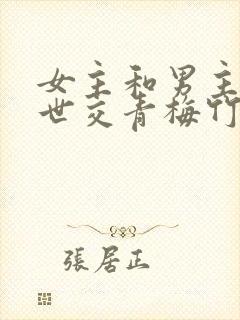 女主和男主
世交青梅竹
張居正